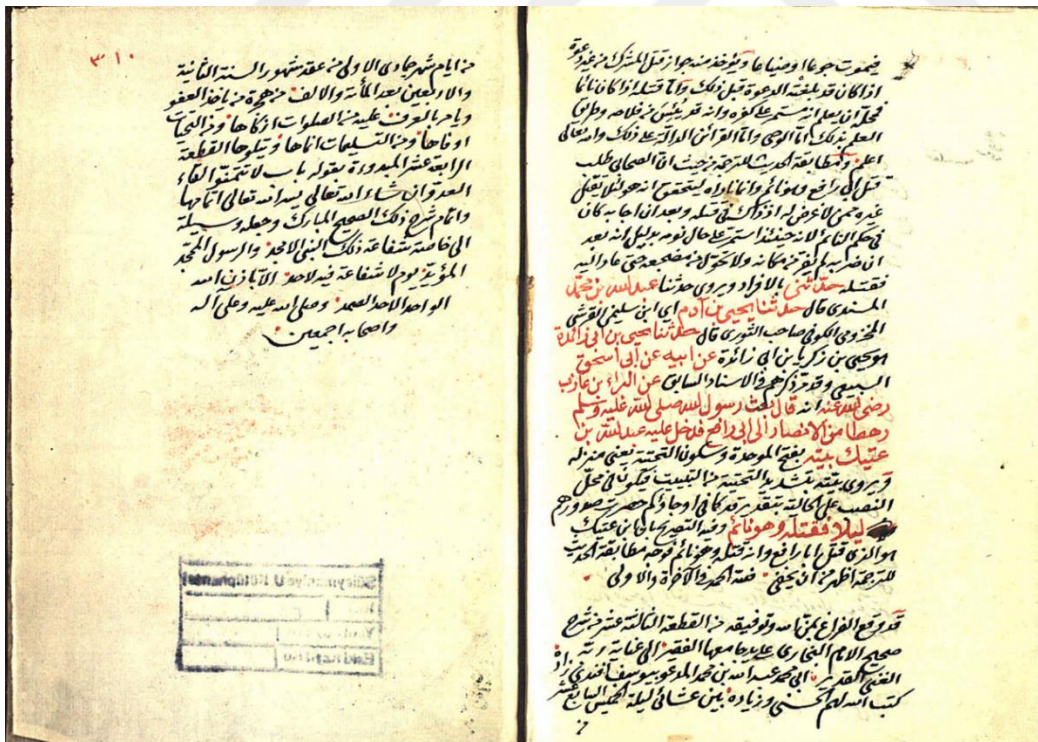 فيموت جوعا وضياعا ويؤخذ منه جواز قتل المشرك من غير دعوة
اذا كان قد بلغته الدعوة قبل ذلك واما قتله اذا كان نائما
فمحله ان يعلم انه مستمر على كفره وانه قد يئس من فلاحه وطريق
العلم بذلك اما الوحى واما القرائن الدالة على ذلك والله تعالى
اعلم ومطابقة الحديث للترجمة من حيث ان الصحابى طلب
قتل ابى رافع وهو نائم وانما ناداه ليتحقق انه هو لئلا يقتل
غيره ممن لا غرض له اذ ذاك فى قتله وبعد ان اجابه كان
فى حكم النائم لانه حينئذ استمر على حال نومه بدليل انه بعد
ان ضربه لم يفر من مكانه ولا تحول من مضجعه حتى عاد اليه
فقتله حدثنى بالافراد ويروى حدثنا عبد الله بن محمد
المسندى قال حدثنا يحيى بن آدم اى ابن سليمن القرشى
المخزومى الكوفى صاحب الثورى قال حدثنا يحيى بن ابى زائدة
هو يحيى بن زكريا بن ابى زائدة عن ابيه عن ابى اسحق
السبيعى وقد مر ذكرهم فى الاسناد السابق عن البراء بن عازب
رضى الله عنه انه قال بعث رسول الله صلى الله عليه وسلم
رهطا من الانصار الى ابى رافع فدخل عليه عبد الله بن
عتيك بيته بفتح الموحدة وسكون التحتية يعنى منزله
ويروى بيته بتشديد التحتية من التبييت فيكون فى محل
النصب على الحالية بتقدير قد كما فى او جاؤكم حصرت صدورهم
ليلا فقتله وهو نائم وفيه التصريح بان ابن عتيك
هو الذى قتل ابا رافع وانه قتله وهو نائم فوجه مطابقة الحديث
للترجمة اظهر من ان يخفى فلله الحمد فى الآخرة والاولى
قد وقع الفراغ بمن الله وتوفيقه من القطعة الثالثة عشر من شرح
صحيح الامام البخارى على يد جامعها الفقير الى عناية ربه
الغنى القدير ابى محمد عبد الله بن محمد المدعو بيوسف افندى زاده
كتب الله لهم الحسنى وزيادة بين عشائى ليلة الخميس السابع عشر
٣١٠
من ايام شهر جمادى الاولى من عقد شهور السنة الثانية
والاربعين بعد المأة والالف من هجرة من يأخذ العفو
ويأمر بالعرف عليه من الصلوات ازكاها ومن التحيات
اوفاها ومن التسليمات اتماها ويتلوها القطعة
الرابعة عشر المبدوءة بقوله باب لا تتمنوا لقاء
العدو ان شاء الله تعالى يسر الله تعالى اتمامها
واتمام شرح ذلك الصحيح المبارك وجعله وسيلة
الى خاصة شفاعة ذلك النبى الامجد والرسول الممجد
المؤيد يوم لا شفاعة فيه لاحد الا باذن الله
الواحد الاحد الصمد وصلى الله عليه وعلى آله
واصحابه اجمعين
Süleymaniye U. Kütüphanesi